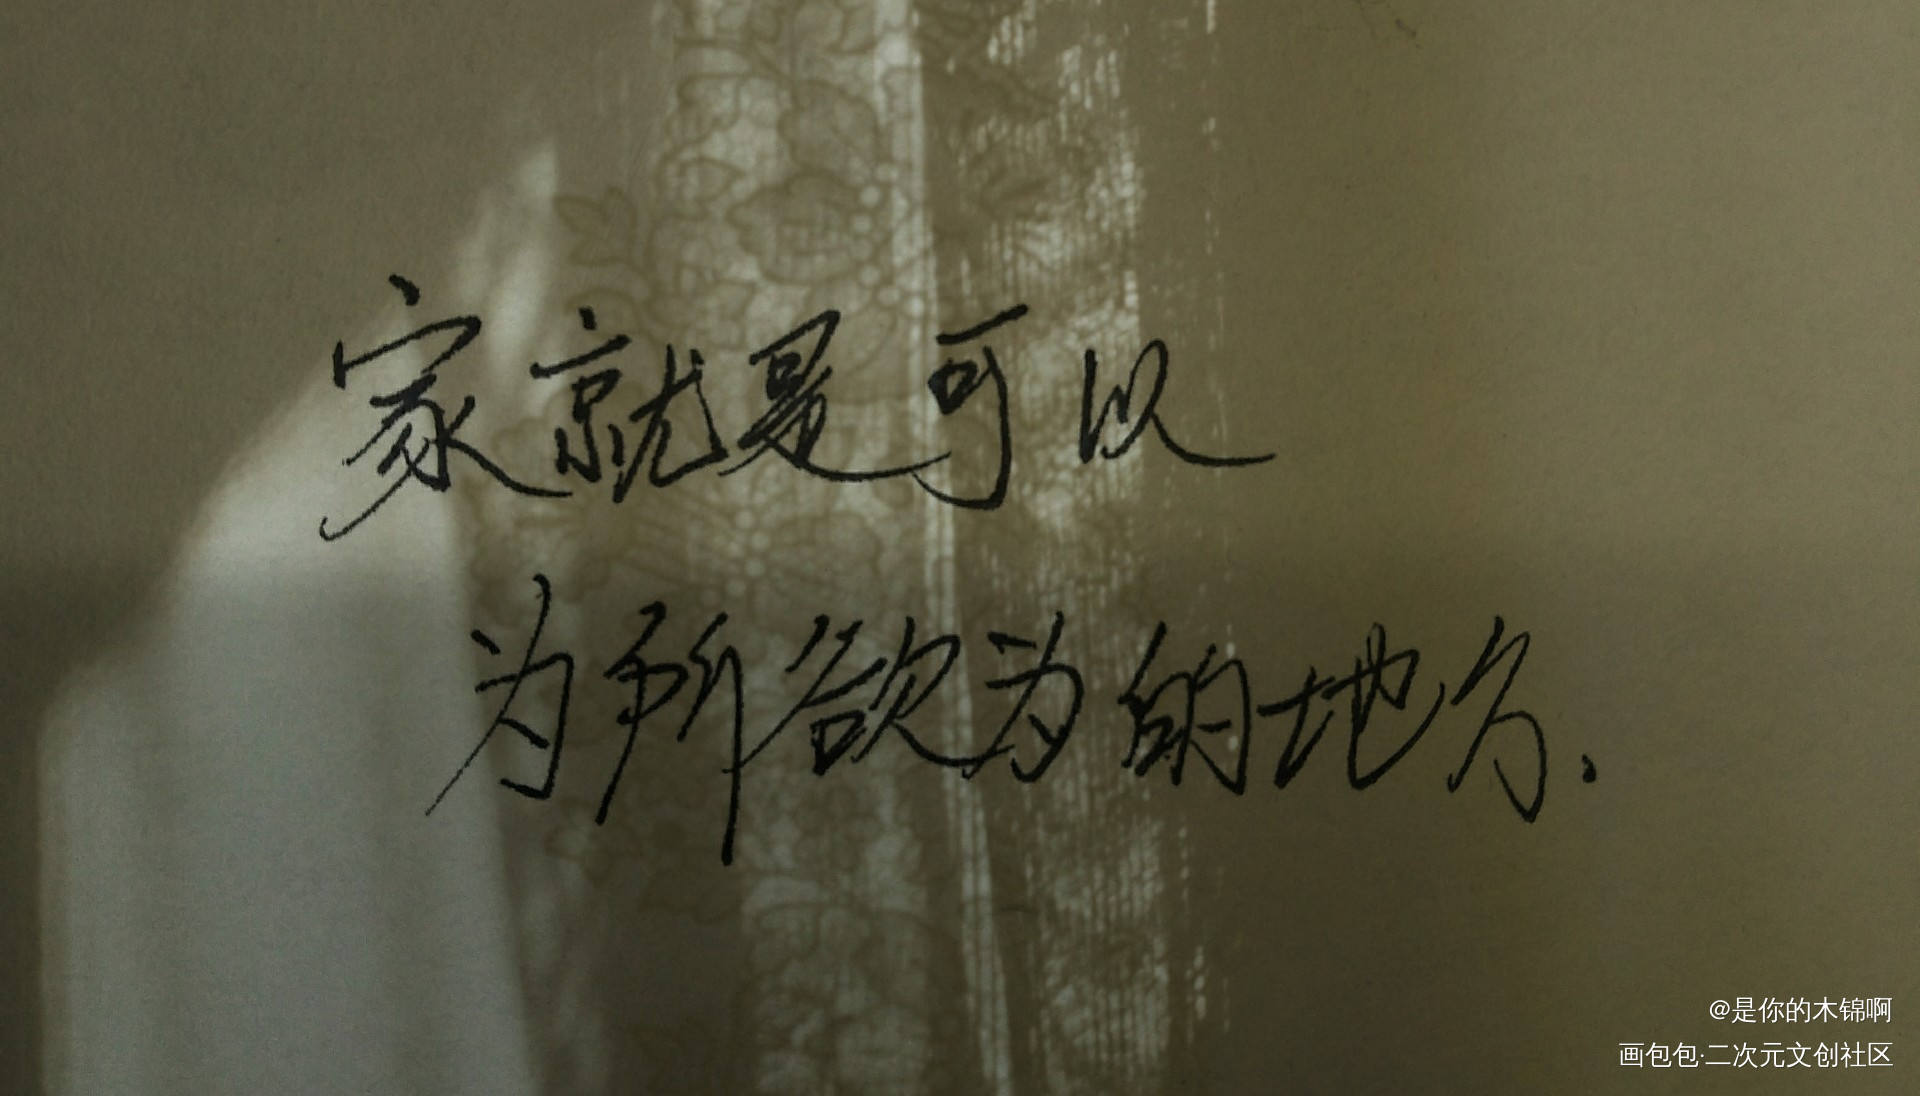 家就是可以
为所欲为的地方.
@是你的木锦啊
画包包·二次元文创社区